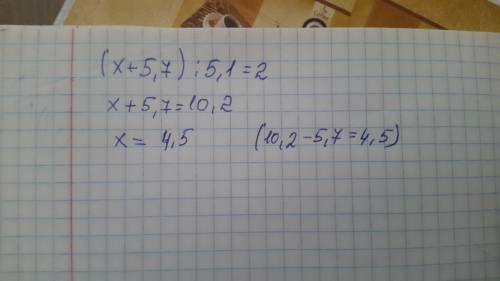 (x+5,7):5,1=2
x+5,7=10,2
x= 4,5 (10,2-5,7=4,5)